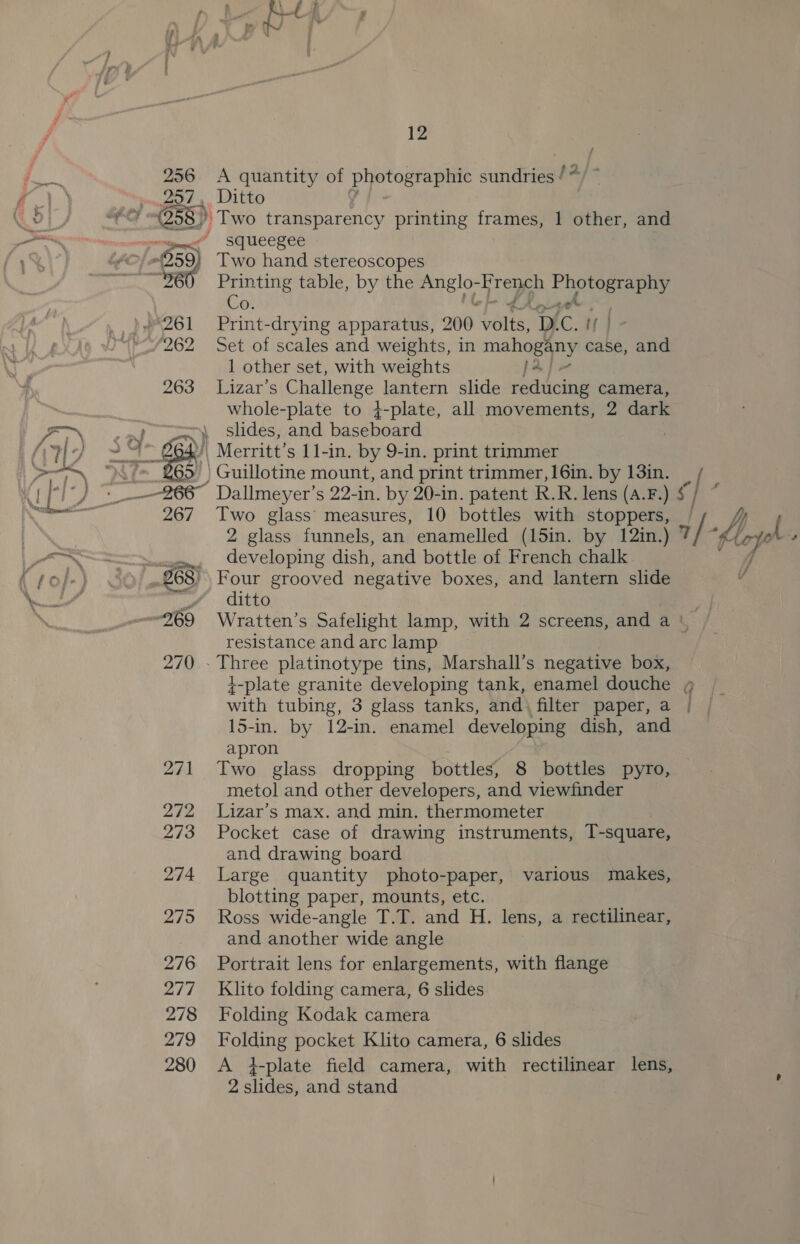 12
256 A quantity of photographic sundries
257 Ditto
258 Two transparency printing frames, 1 other, and
squeegee
259 Two hand stereoscopes
260 Printing table, by the Anglo-French Photography
Co.
261 Print-drying apparatus, 200 volts, D.C.
262 Set of scales and weights, in mahogany case, and
1 other set, with weights
263 Lizar's Challenge lantern slide reducing camera,
whole-plate to ¼-plate, all movements, 2 dark
slides, and baseboard
264 Merritt's 11-in. by 9-in. print trimmer
265 Guillotine mount, and print trimmer, 16in. by 13in.
266 Dallmeyer's 22-in. by 20-in. patent R.R. lens (A.F.)
267 Two glass measures, 10 bottles with stoppers,
2 glass funnels, an enamelled (15in. by 12in.)
developing dish, and bottle of French chalk
268 Four grooved negative boxes, and lantern slide
ditto
269 Wratten's Safelight lamp, with 2 screens, and a
resistance and arc lamp
270 Three platinotype tins, Marshall's negative box,
¼-plate granite developing tank, enamel douche
with tubing, 3 glass tanks, and filter paper, a
15-in. by 12-in. enamel developing dish, and
apron
271 Two glass dropping bottles, 8 bottles pyro,
metol and other developers, and viewfinder
272 Lizar's max. and min. thermometer
273 Pocket case of drawing instruments, T-square,
and drawing board
274 Large quantity photo-paper, various makes,
blotting paper, mounts, etc.
275 Ross wide-angle T.T. and H. lens, a rectilinear,
and another wide angle
276 Portrait lens for enlargements, with flange
277 Klito folding camera, 6 slides
278 Folding Kodak camera
279 Folding pocket Klito camera, 6 slides
280 A ¼-plate field camera, with rectilinear lens,
2 slides, and stand